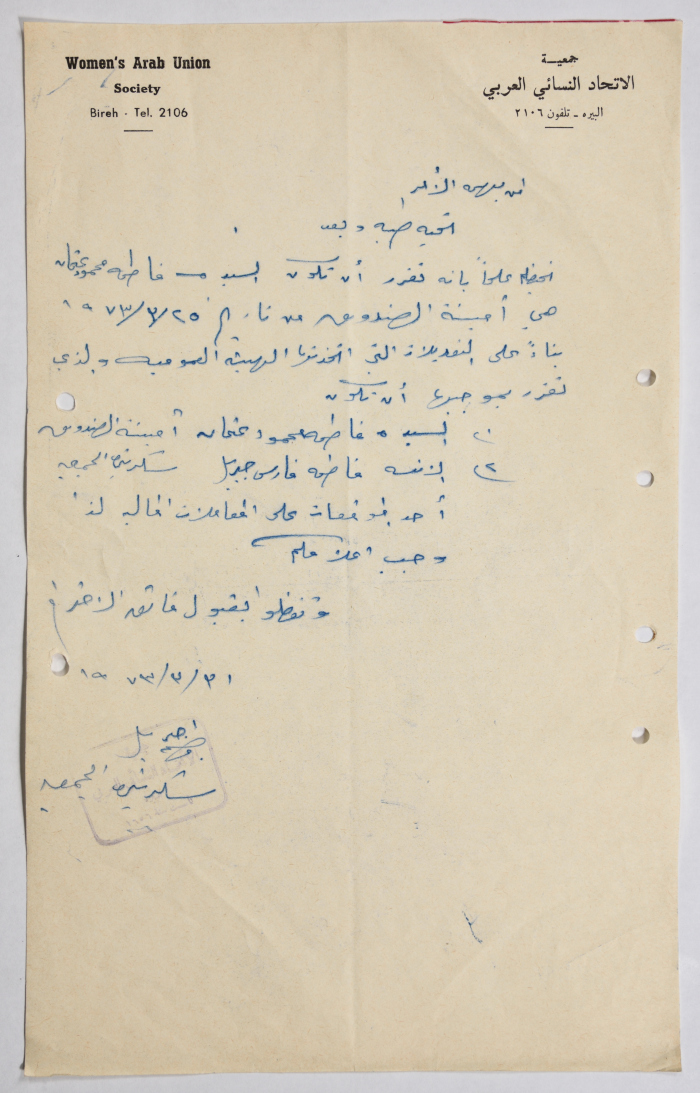 Women's Arab Union
Society
Bireh · Tel. 2106
جمعيــة
الاتحاد النسائي العربي
البيره ـ تلفون ٢١٠٦
لمن يهمه الأمر
تحيه طيبه وبعد
نحيطكم علماً بانه تقرر أن تكون السيده فاطمه محمود عثمان
هي أمينة الصندوق من تاريخ ١٩٧٣/٣/٢٥
بناءً على التعديلات التي اتخذتها الهيئة العموميه والذي
تقرر بموجبها أن تكون
١) السيده فاطمه محمود عثمان أمينة الصندوق
٢) الانسه فاطمه فارس جبريل سكرتيرة الجمعيه
أحد الموقعات على المعاملات الماليه لذا
وجب اعلامكم
وتفضلوا بقبول فائق الاحترام
١٩٧٣/٣/٣١
سكرتيرة الجمعيه